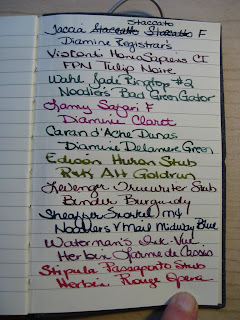 Staccato
Taccia Staccato Staccato F
Diamine Registrar's
Visconti Homo Sapiens CI
FPN Tulip Noire
Wahl Jade Ringtop #2
Noodler's Bad Green Gator
Lamy Safari F
Diamine Claret
Caran d'Ache Dunas
Diamine Delamere Green
Edison Huron Stub
R&K Alt Goldrun
Levenger Truewriter Stub
Binder Burgundy
Sheaffer Snorkel M4
Noodlers V Mail Midway Blue
Waterman's Ink-Vue
Herbin Larme de Cassis
Stipula Passaporto Stub
Herbin Rouge Opera